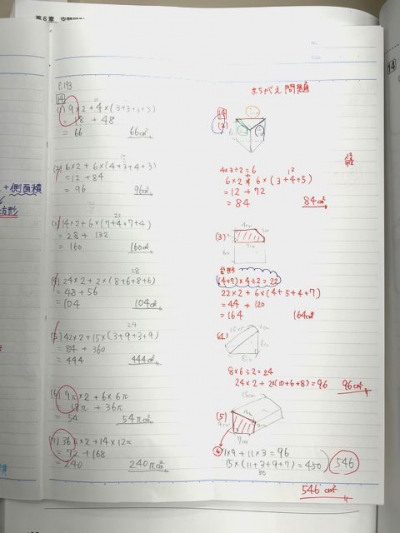 第6章
P.113
(1) 9×2+4×(3+3+3+3)
= 18 + 48
= 66 66cm²
(2) 6×2+6×(3+4+3+5)
= 12 + 84
= 96 96cm²
(3) 14×2+6×(7+4+7+4)
= 28 + 132
= 160 160cm²
(4) 24×2+2×(8+6+8+6)
= 48 + 56
= 104 104cm²
(5) 42×2+15×(3+9+3+9)
= 84 + 360
= 444 444cm²
(6) 9π×2+6×6π
= 18π + 36π
= 54 54πcm²
(7) 36×2+14×12π
= 72 + 168
= 240 240πcm²
+側面積
まちがえ問題
(2)
4×3÷2=6
6×2+6×(3+4+5)
= 12 + 72
= 84 84cm²
(3)
(4+7)×4÷2=22
22×2+6×(4+5+4+7)
= 44 + 120
= 164 164cm²
(4)
8×6÷2=24
24×2+2×(10+6+8)=96 96cm²
(5)
7×9+11×3=96
15×(11+3+9+7)=450
546
546cm²